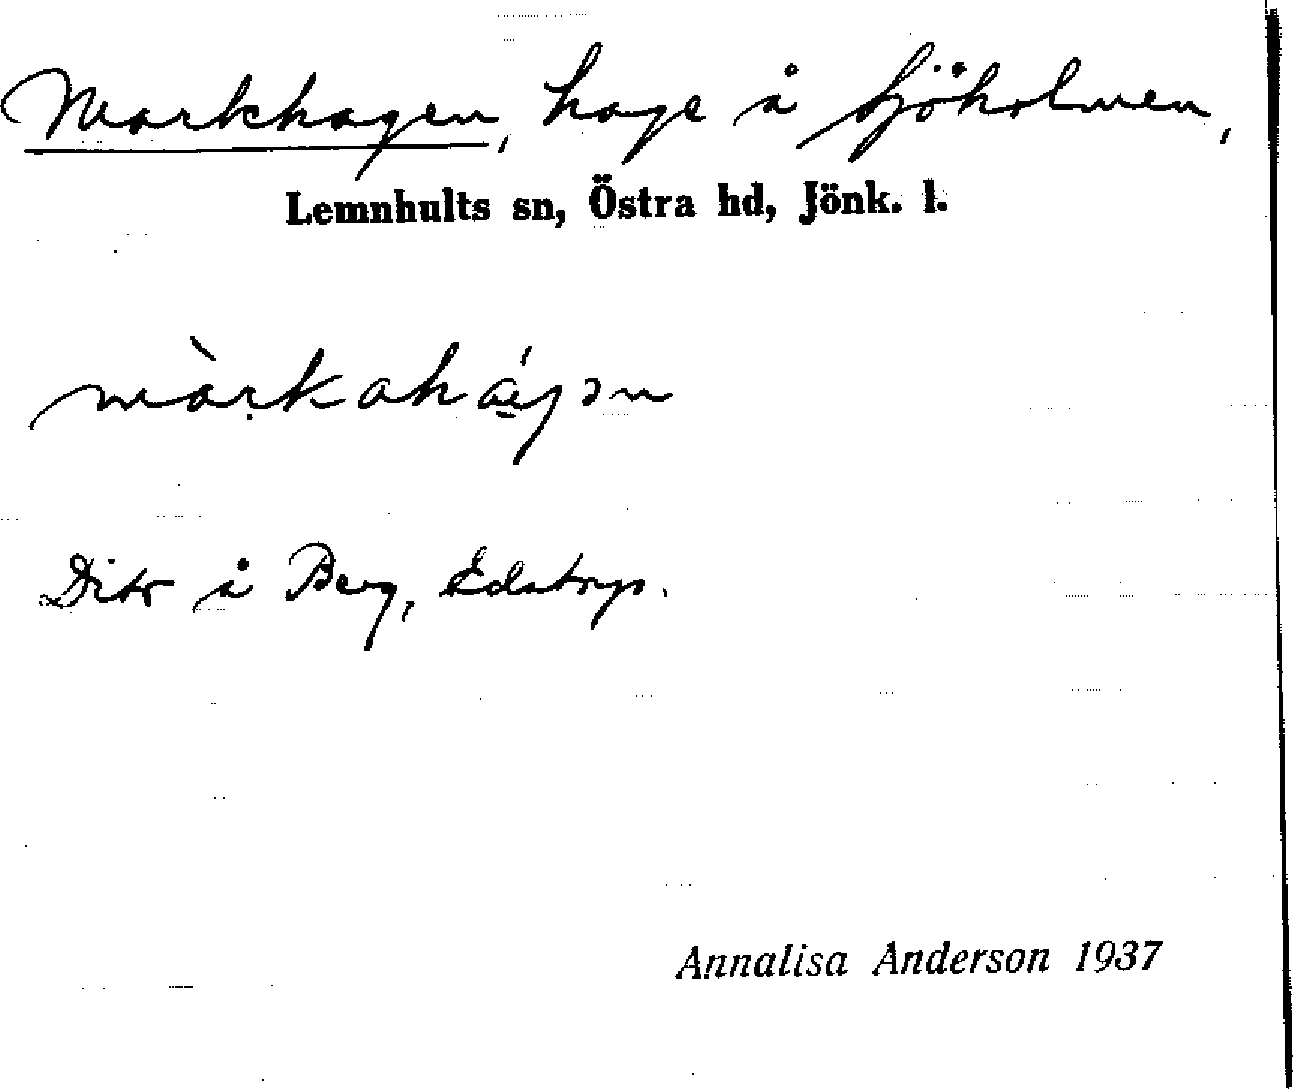 Markhagen, hage å Sjöholmen,
Lemnhults sn, Östra hd, Jönk. l.
màrkahágən
Dito å Berg,
Annalisa Anderson 1937